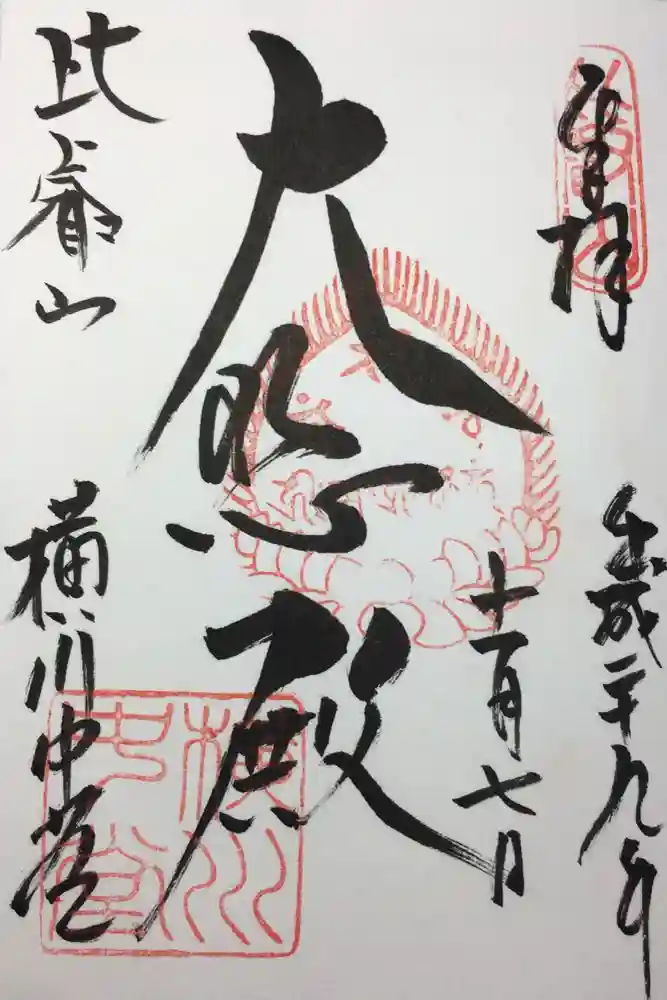 奉拝
平成二十九年
十一月七日
大悲殿
比叡山
横川中堂
横川
中堂